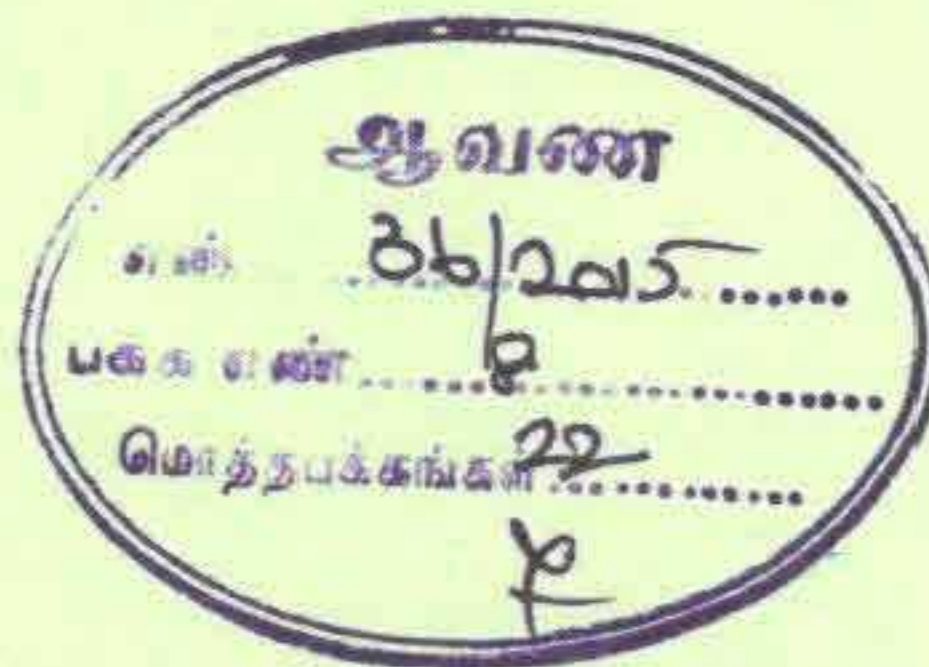 ஆவண
எண் ................ 36/2015. ......
பக்க எண் ................ 8 ................
மொத்தபக்கங்கள் 22 ............